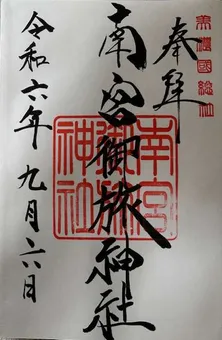 美濃國総社
奉拜
南宮御旅神社
南宮御旅神社
令和六年九月六日